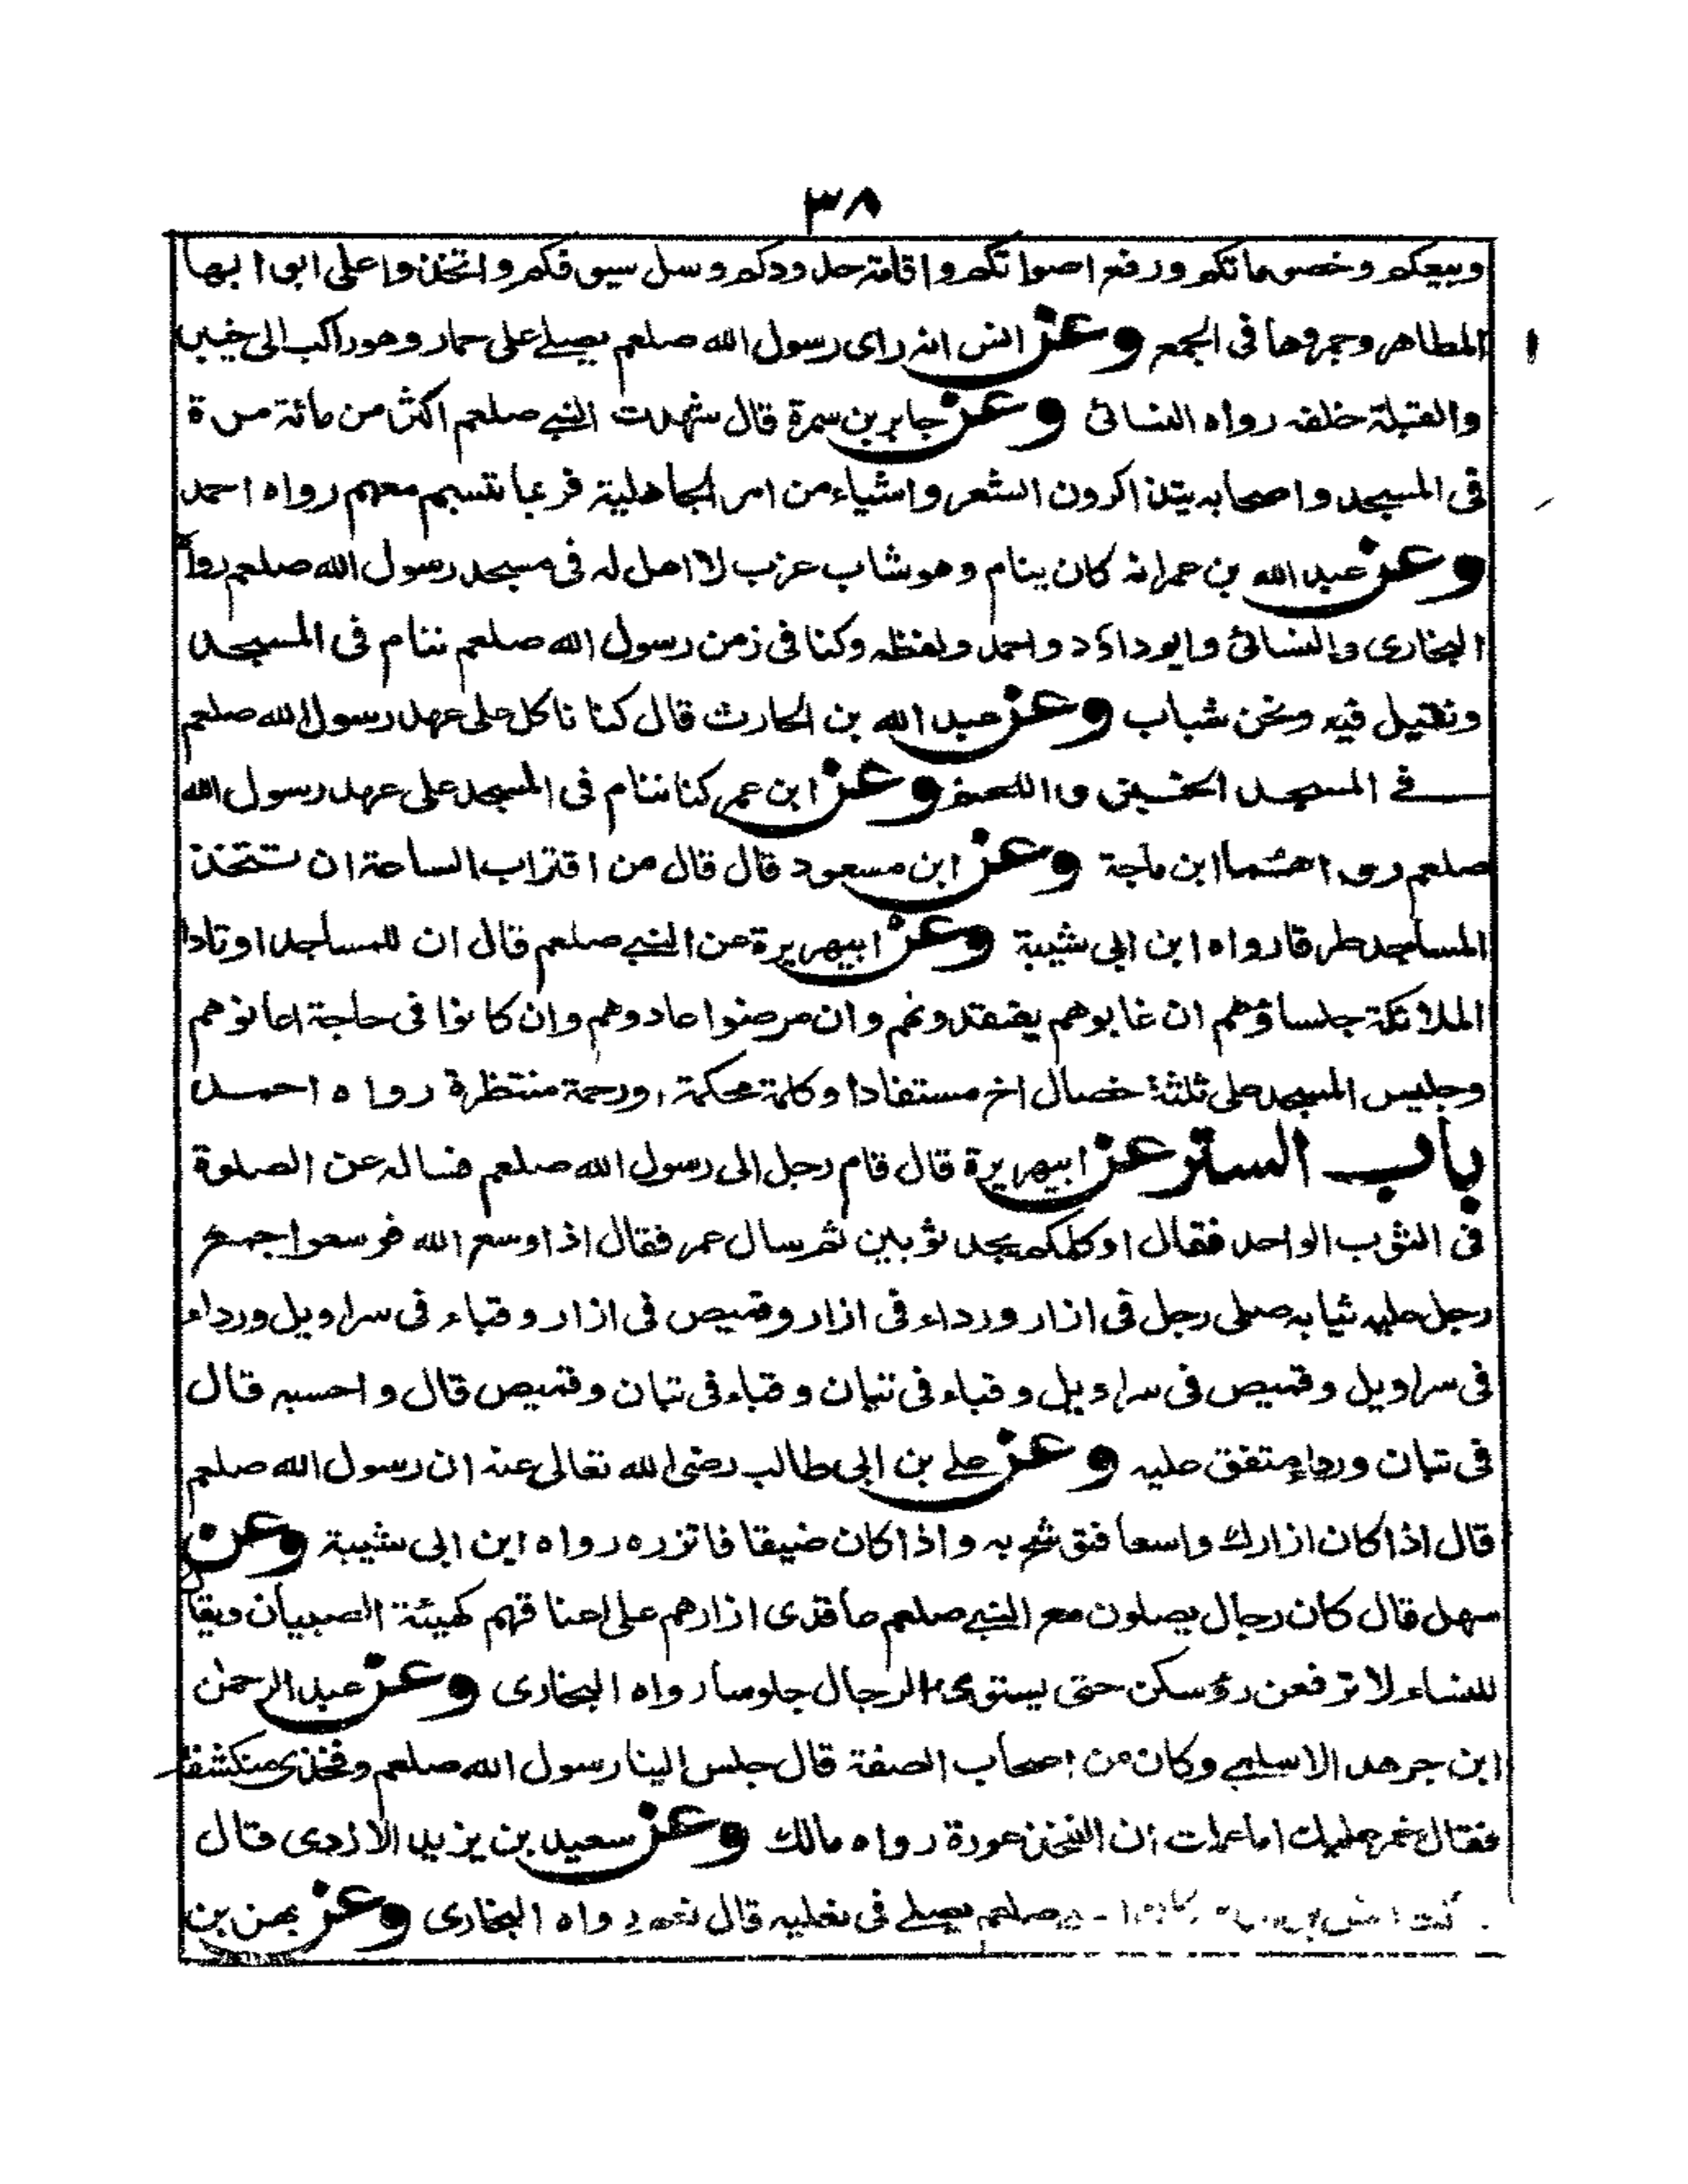 ٣٨
وبيعكم وخصوماتكم ورفع اصواتكم واقامة حدودكم وسل سيوفكم واتخذوا على ابوابها
المطاهر وجمروها فى الجمع وعن انس انه راى رسول الله صلعم يصلے على حمار وهو راكب الى خيبر
والقبلة خلفه رواه النسائى وعن جابر بن سمرة قال شهدت النبے صلعم اكثر من مائة مرة
فى المسجد واصحابه يتذاكرون الشعر واشياء من امر الجاهلية فربما تبسم معهم رواه احمد
وعن عبد الله بن عمر انه كان ينام وهو شاب عزب لا اهل له فى مسجد رسول الله صلعم رواه
البخارى والنسائى وابو داؤد واحمد ولفظه وكنا فى زمن رسول الله صلعم ننام فى المسجد
ونقيل فيه ونحن شباب وعن عبد الله بن الحارث قال كنا ناكل على عهد رسول الله صلعم
فے المسجد الخبز واللحم وعن ابن عمر كنا ننام فى المسجد على عهد رسول الله
صلعم ابن ماجة وعن ابن مسعود قال قال من اقتراب الساعة ان تتخذ
المساجد طرقا رواه ابن ابى شيبة وعن ابيهريرة عن النبے صلعم قال ان للمساجد اوتادا
الملائكة جلساؤهم ان غابوهم يفتقدونهم وان مرضوا عادوهم وان كانوا فى حاجة اعانوهم
وجليس المسجد على ثلثة خصال اخ مستفادا وكلمة محكمة، ورحمة منتظرة رواه احمد
باب الستر عن ابيهريرة قال قام رجل الى رسول الله صلعم فساله عن الصلوة
فى الثوب الواحد فقال اوكلكم يجد ثوبين ثم سال عمر فقال اذا وسع الله فوسعوا جمع
رجل عليه ثيابه صلى رجل فى ازار ورداء فى ازار وقميص فى ازار وقباء فى سراويل ورداء
فى سراويل وقميص فى سراويل وقباء فى تبان وقباء فى تبان وقميص قال واحسبه قال
فى تبان ورداء متفق عليه وعن علے بن ابى طالب رضى الله تعالى عنه ان رسول الله صلعم
قال اذا كان ازارك واسعا فتوشح به واذا كان ضيقا فاتزره رواه ابن ابى شيبة وعن
سهل قال كان رجال يصلون مع النبے صلعم عاقدى ازارهم على اعناقهم كهيئة الصبيان ويقال
للنساء لا ترفعن رؤسكن حتى يستوى الرجال جلوسا رواه البخارى وعن عبد الرحمن
ابن جرهد الاسلمے وكان من اصحاب الصفة قال جلس الينا رسول الله صلعم وفخذى منكشفة
فقال خمر عليك اما علمت ان الفخذ عورة رواه مالك وعن سعيد بن يزيد الازدى قال
صلعم يصلے فى نعليه قال نعم رواه البخارى وعن بهز بن